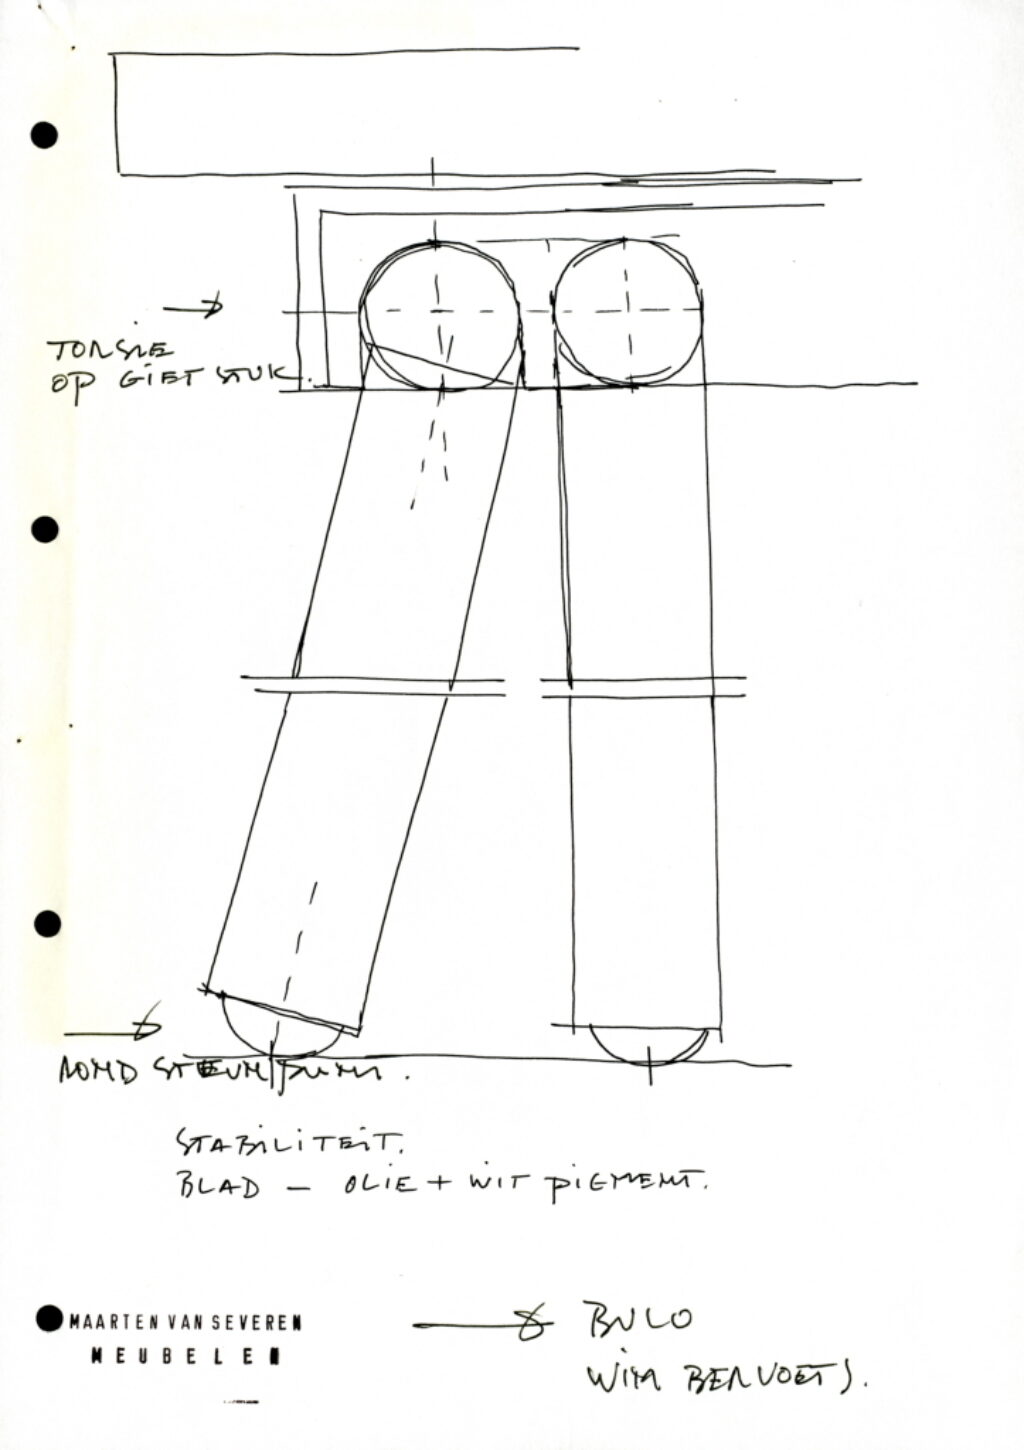 TORSIE
OP GIETSTUK.
ROND STEUNPUNT.
STABILITEIT.
BLAD — OLIE + WIT PIGMENT.
MAARTEN VAN SEVEREN
MEUBELEN
BULO
WIM BERVOETS.